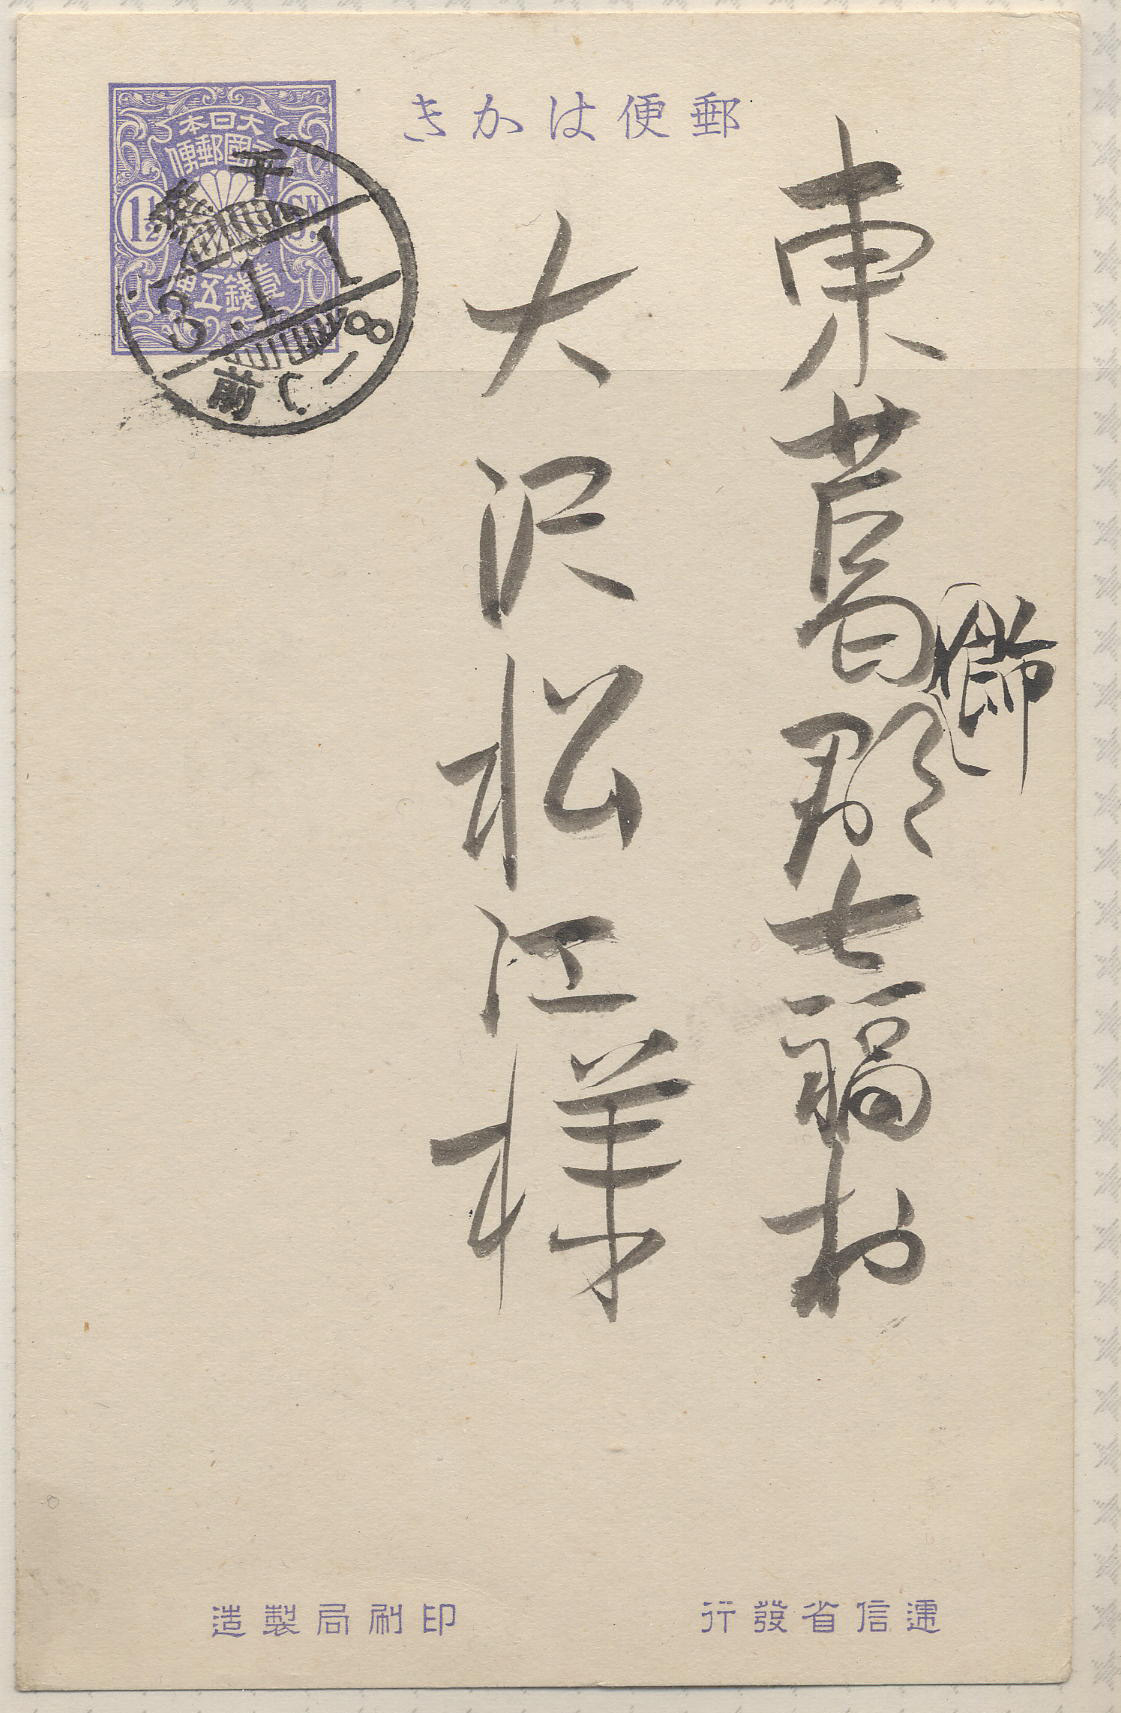 郵便はかき
大日本
帝國郵便
1½
SN
壹錢五厘
千葉
3.1.1
前
8
東葛郡七福村
飾
大沢松江様
逓信省發行
印刷局製造